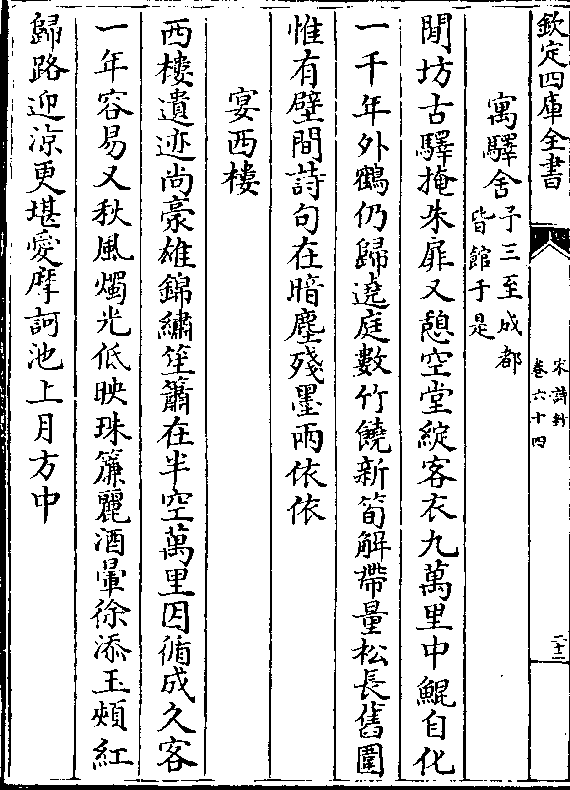 欽定四庫全書
宋詩鈔
卷六十四
二十二
寓驛舍
予三至成都
皆館于是
閒坊古驛掩朱扉又憩空堂綻客衣九萬里中鯤自化
一千年外鶴仍歸遶庭數竹饒新筍解帶量松長舊圍
惟有壁間詩句在暗塵殘墨兩依依
宴西樓
西樓遺迹尚豪雄錦繡笙簫在半空萬里因循成久客
一年容易又秋風燭光低映珠簾麗酒暈徐添玉頰紅
歸路迎涼更堪愛摩訶池上月方中